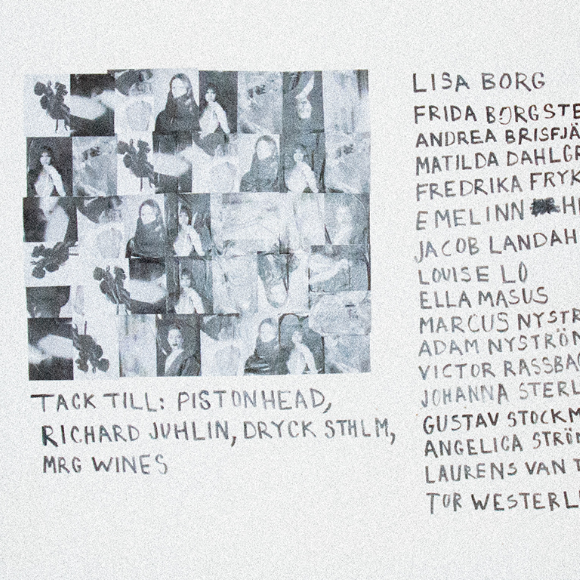 TACK TILL: PISTONHEAD,
RICHARD JUHLIN, DRYCK STHLM,
MRG WINES
LISA BORG
FRIDA BORGSTE
ANDREA BRISFJÄ
MATILDA DAHLGR
FREDRIKA FRYK
EMELINN H
JACOB LANDAH
LOUISE LÖ
ELLA MASUS
MARCUS NYSTR
ADAM NYSTRÖM
VICTOR RASSBA
JOHANNA STERL
GUSTAV STOCKM
ANGELICA STRÖM
LAURENS VAN T
TOR WESTERL